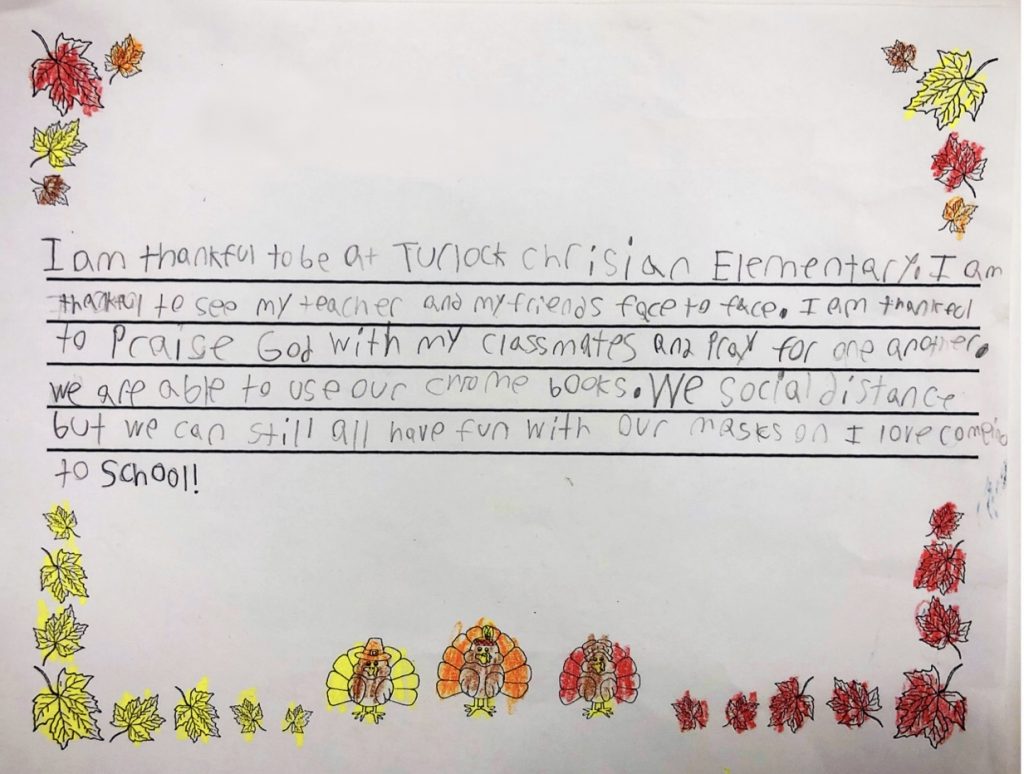 I am thankful to be at Turlock chrisian Elementary. I am
thankful to see my teacher and my friends face to face. I am thankful
to Praise God with my classmates and Pray for one another.
we are able to use our chrome books. We social distance
but we can still all have fun with our masks on I love comeing
to school!